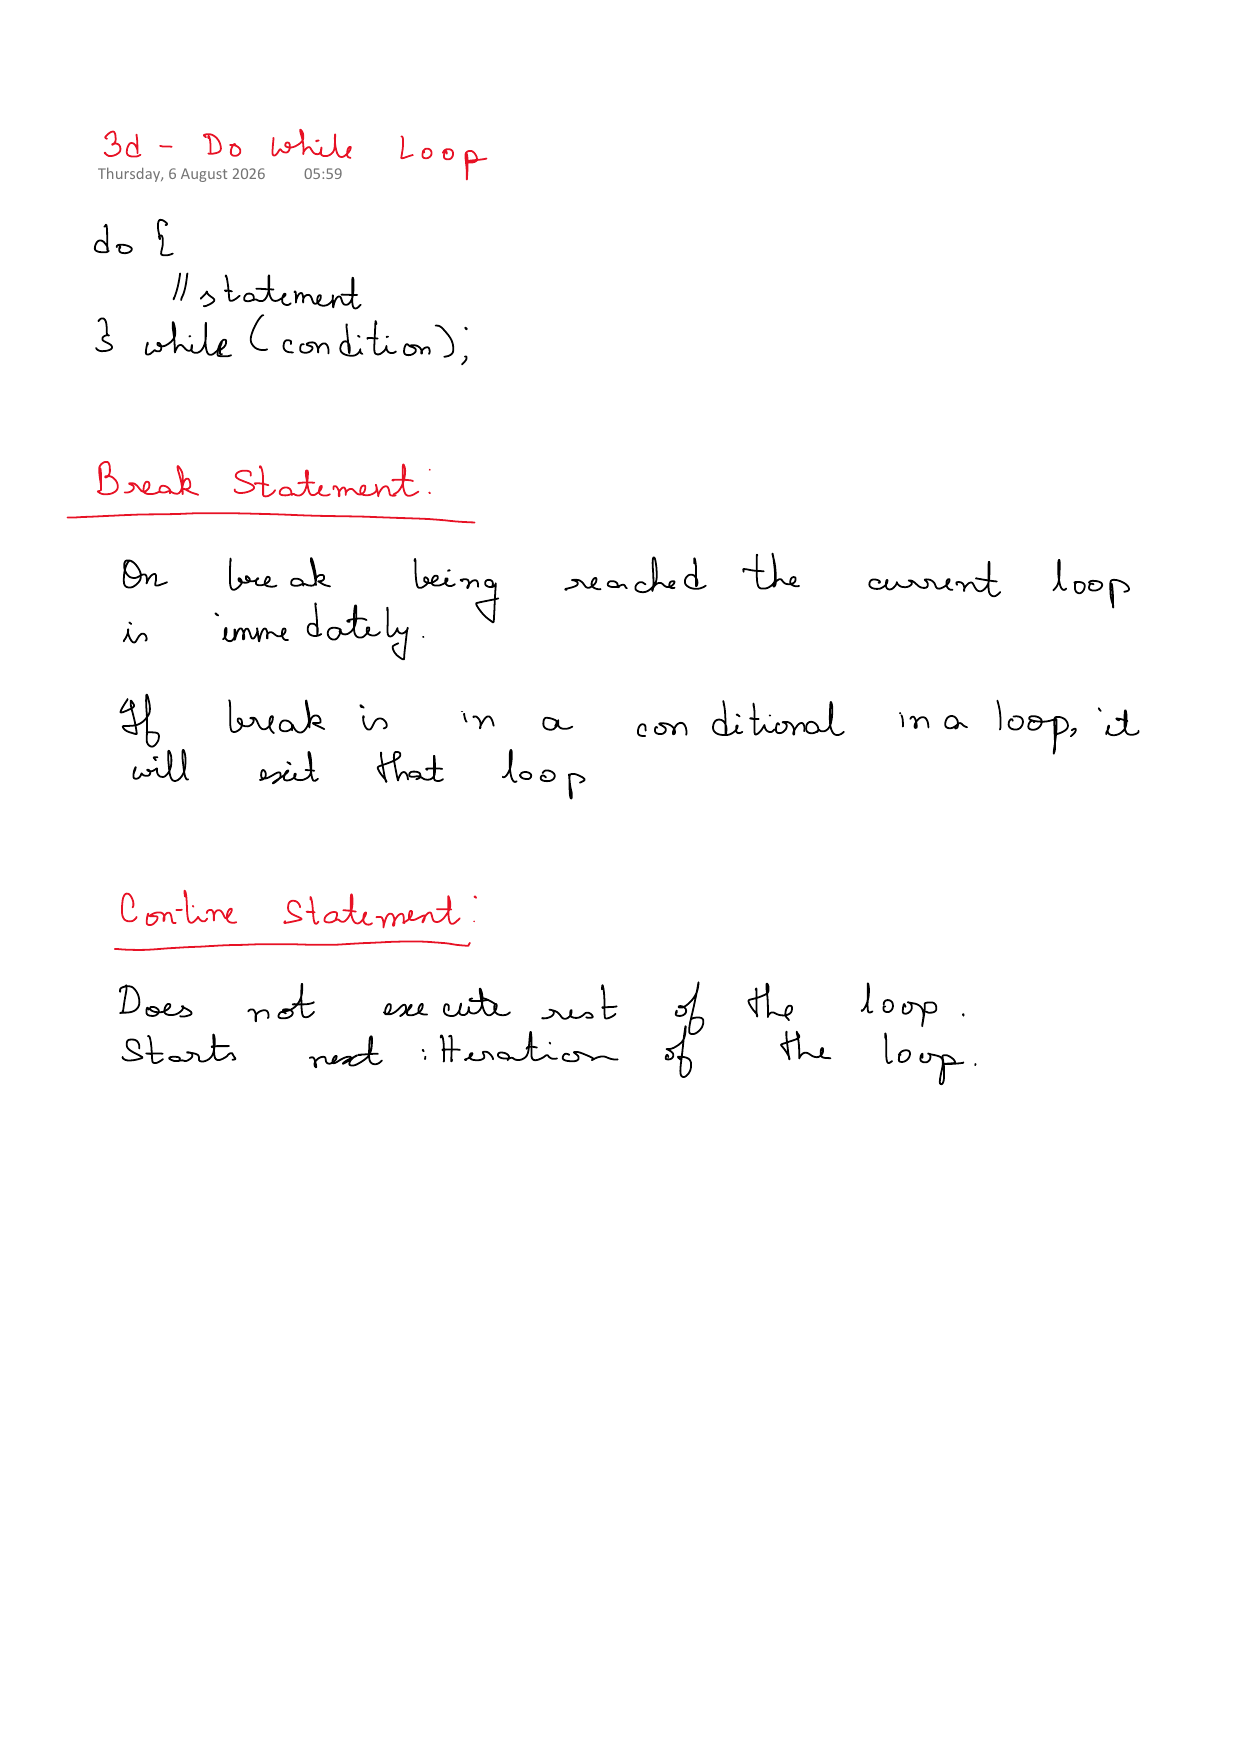 3d - Do while Loop
Thursday, 6 August 2026 05:59
do {
// statement
} while (condition);
Break Statement:
On break being reached the current loop
is immedately.
If break is in a conditional in a loop, it
will exit that loop
Contine Statement:
Does not execute rest of the loop.
Starts next itteration of the loop.